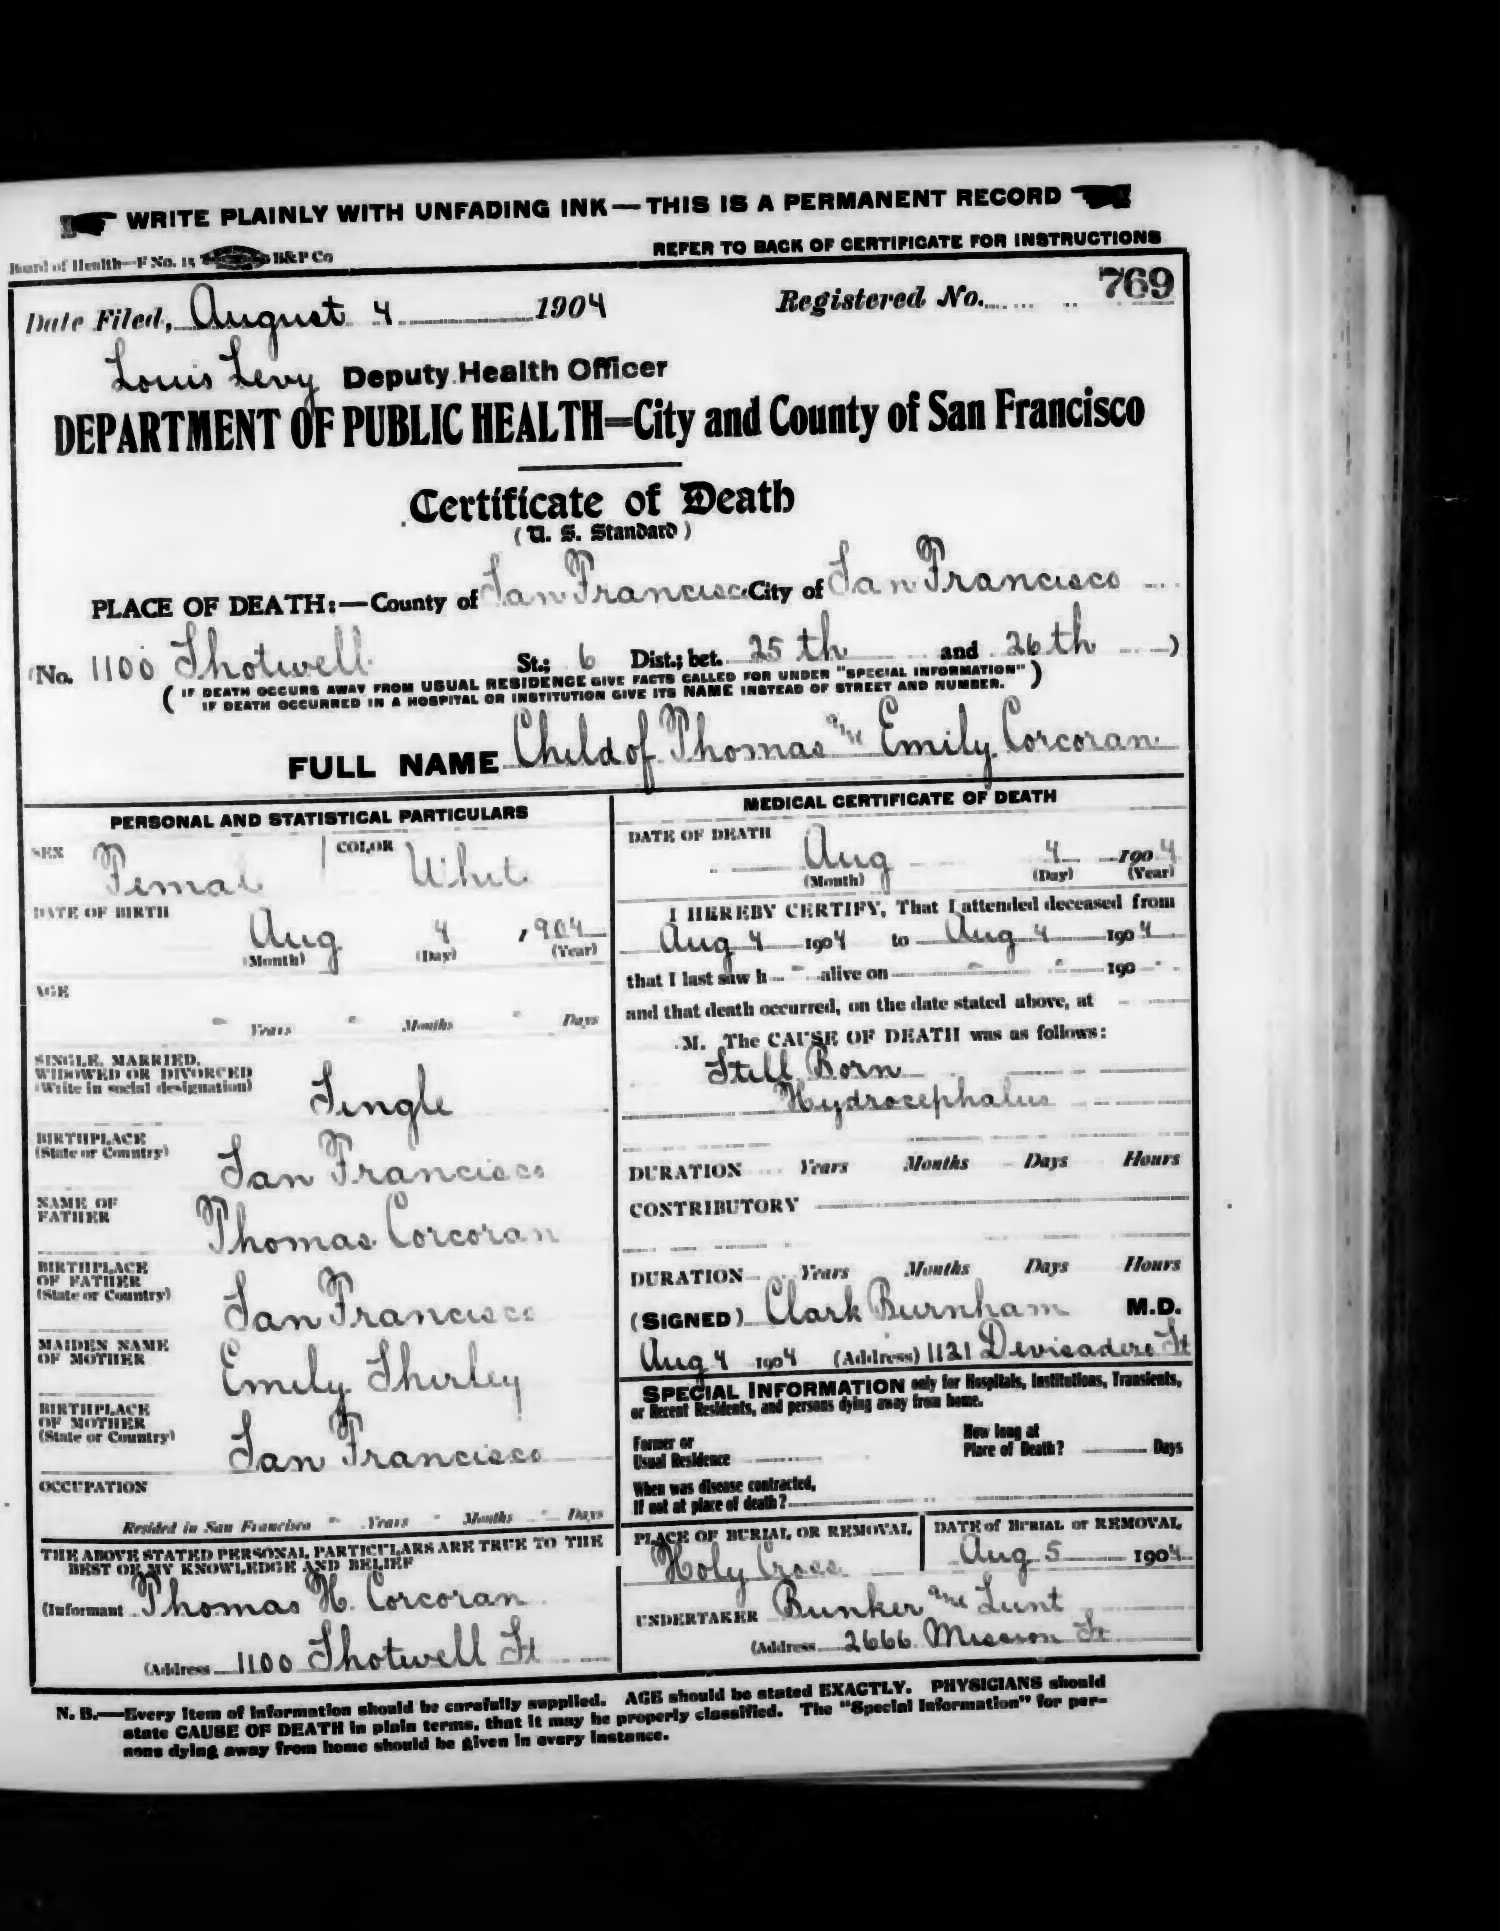 WRITE PLAINLY WITH UNFADING INK—THIS IS A PERMANENT RECORD
Board of Health—F No. 15 B&P Co
REFER TO BACK OF CERTIFICATE FOR INSTRUCTIONS
Date Filed, August 4 1904
Registered No. 769
Louis Levy Deputy Health Officer
DEPARTMENT OF PUBLIC HEALTH=City and County of San Francisco
Certificate of Death
(U. S. Standard)
PLACE OF DEATH:—County of San Francisco City of San Francisco
(No. 1100 Shotwell St.; 6 Dist.; bet. 25th and 26th)
(IF DEATH OCCURS AWAY FROM USUAL RESIDENCE GIVE FACTS CALLED FOR UNDER "SPECIAL INFORMATION"
IF DEATH OCCURRED IN A HOSPITAL OR INSTITUTION GIVE ITS NAME INSTEAD OF STREET AND NUMBER.)
FULL NAME Child of Thomas and Emily Corcoran
PERSONAL AND STATISTICAL PARTICULARS
SEX Female COLOR White
DATE OF BIRTH
Aug 4 1904
(Month) (Day) (Year)
AGE
Years Months Days
SINGLE, MARRIED,
WIDOWED OR DIVORCED
(Write in social designation)
Single
BIRTHPLACE
(State or Country)
San Francisco
NAME OF
FATHER
Thomas Corcoran
BIRTHPLACE
OF FATHER
(State or Country)
San Francisco
MAIDEN NAME
OF MOTHER
Emily Shirley
BIRTHPLACE
OF MOTHER
(State or Country)
San Francisco
OCCUPATION
Resided in San Francisco Years Months Days
THE ABOVE STATED PERSONAL PARTICULARS ARE TRUE TO THE
BEST OF MY KNOWLEDGE AND BELIEF
(Informant Thomas H. Corcoran
(Address 1100 Shotwell St
MEDICAL CERTIFICATE OF DEATH
DATE OF DEATH
Aug 4 1904
(Month) (Day) (Year)
I HEREBY CERTIFY, That I attended deceased from
Aug 4 1904 to Aug 4 1904
that I last saw h alive on 190
and that death occurred, on the date stated above, at
M. The CAUSE OF DEATH was as follows:
Still Born
Hydrocephalus
DURATION Years Months Days Hours
CONTRIBUTORY
DURATION Years Months Days Hours
(SIGNED) Clark Burnham M.D.
Aug 4 1904 (Address) 1121 Devisadero St
SPECIAL INFORMATION only for Hospitals, Institutions, Transients,
or Recent Residents, and persons dying away from home.
Former or
Usual Residence
How long at
Place of Death? Days
When was disease contracted,
If not at place of death?
PLACE OF BURIAL OR REMOVAL
Holy Cross
DATE of BURIAL or REMOVAL
Aug 5 1904
UNDERTAKER Bunker and Lunt
(Address 2666 Mission St
N. B.—Every item of information should be carefully supplied. AGE should be stated EXACTLY. PHYSICIANS should
state CAUSE OF DEATH in plain terms, that it may be properly classified. The "Special Information" for per-
sons dying away from home should be given in every instance.